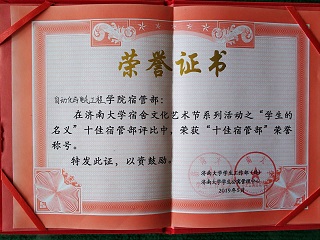 荣誉证书
自动化与电气工程学院宿管部：
在济南大学宿舍文化艺术节系列活动之“学生的
名义”十佳宿管部评比中，荣获“十佳宿管部”荣誉
称号。
特发此证，以资鼓励。
济南大学学生工作部（处）
济南大学学生公寓管理中心
2019年5月